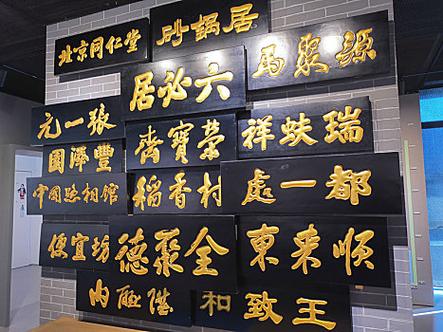 北京同仁堂
砂鍋居
馬聚源
六必居
張一元
榮寶齋
瑞蚨祥
豐澤園
中国照相馆
稻香村
都一處
便宜坊
全聚德
東来順
内聯陞
王致和